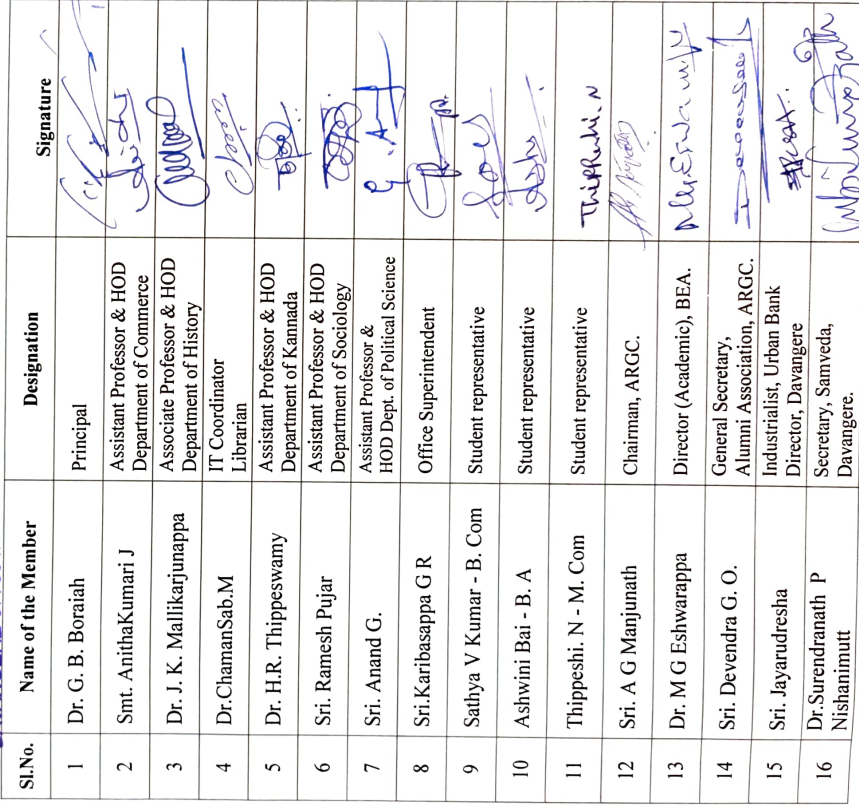 Sl.No. Name of the Member Designation Signature
1 Dr. G. B. Boraiah Principal
2 Smt. AnithaKumari J Assistant Professor & HOD
Department of Commerce
3 Dr. J. K. Mallikarjunappa Associate Professor & HOD
Department of History
4 Dr.ChamanSab.M IT Coordinator
Librarian
5 Dr. H.R. Thippeswamy Assistant Professor & HOD
Department of Kannada
6 Sri. Ramesh Pujar Assistant Professor & HOD
Department of Sociology
7 Sri. Anand G. Assistant Professor &
HOD Dept. of Political Science
8 Sri.Karibasappa G R Office Superintendent
9 Sathya V Kumar - B. Com Student representative
10 Ashwini Bai - B. A Student representative
11 Thippeshi. N - M. Com Student representative Thippeshi. N
12 Sri. A G Manjunath Chairman, ARGC.
13 Dr. M G Eshwarappa Director (Academic), BEA.
14 Sri. Devendra G. O. General Secretary,
Alumni Association, ARGC.
15 Sri. Jayarudresha Industrialist, Urban Bank
Director, Davangere
16 Dr.Surendranath P Secretary, Samveda,
Nishanimutt Davangere.